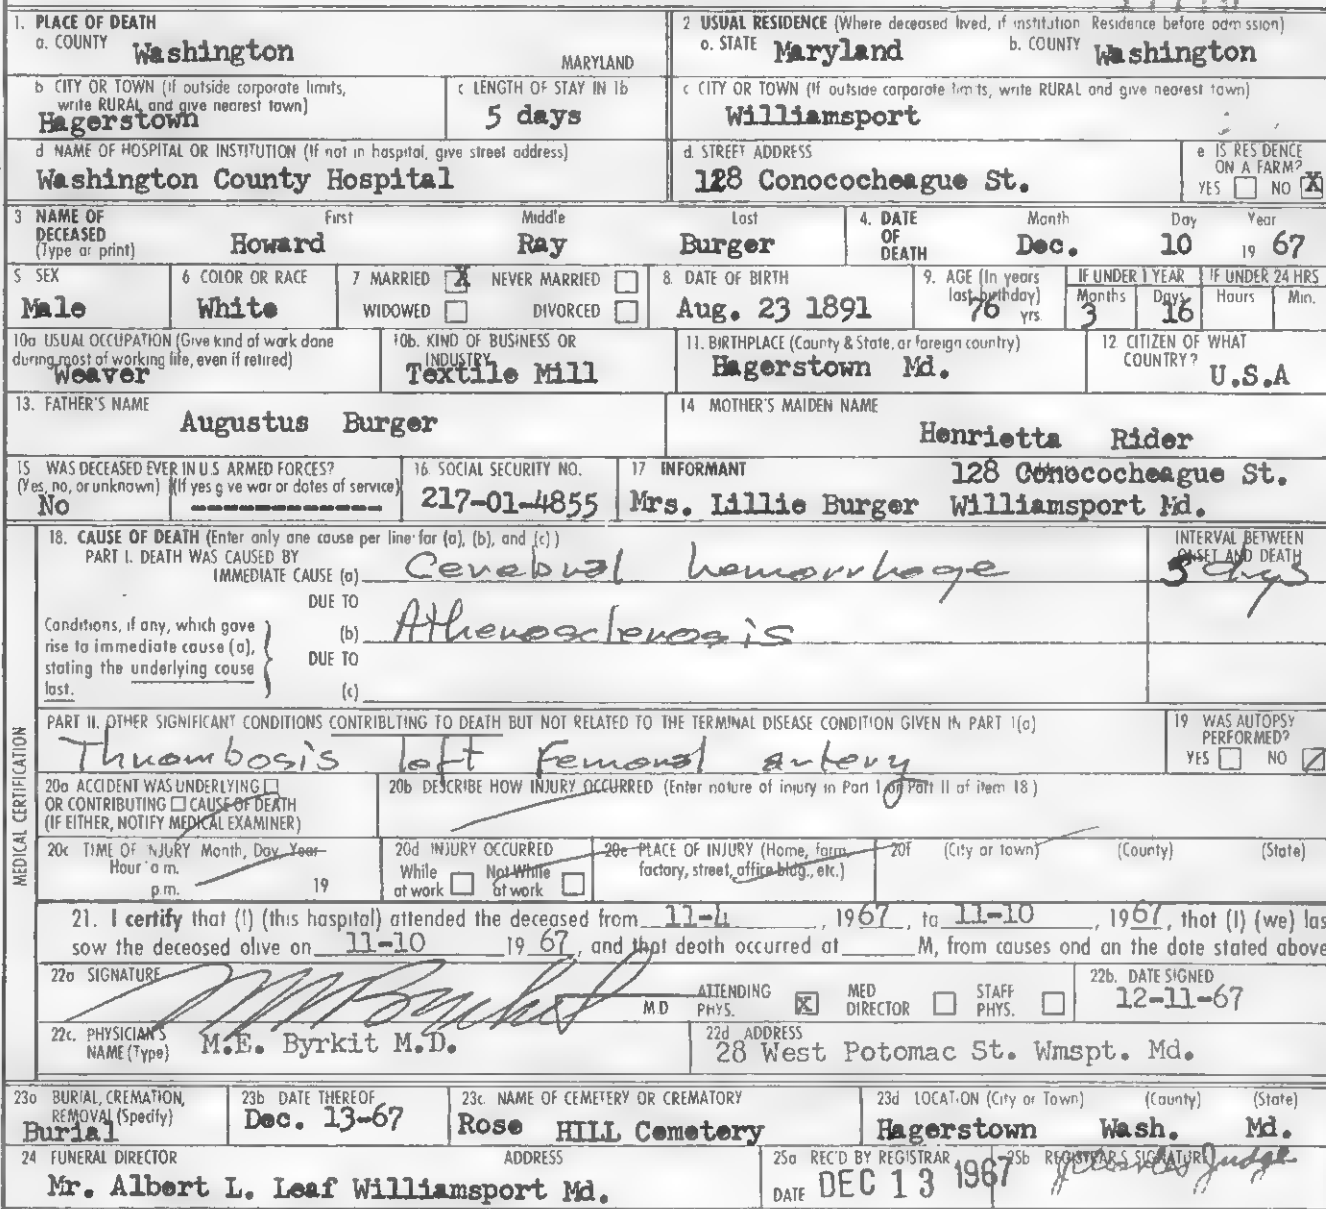 1. PLACE OF DEATH
a. COUNTY Washington MARYLAND
2 USUAL RESIDENCE (Where deceased lived, if institution Residence before admission)
a. STATE Maryland b. COUNTY Washington
b CITY OR TOWN (if outside corporate limits, write RURAL and give nearest town)
Hagerstown
c LENGTH OF STAY IN 1b
5 days
c CITY OR TOWN (If outside corporate limits, write RURAL and give nearest town)
Williamsport
d NAME OF HOSPITAL OR INSTITUTION (If not in hospital, give street address)
Washington County Hospital
d. STREET ADDRESS
128 Conococheague St.
e IS RESIDENCE ON A FARM?
YES NO X
3 NAME OF DECEASED (Type or print)
First Middle Last
Howard Ray Burger
4. DATE OF DEATH
Month Day Year
Dec. 10 19 67
5 SEX
Male
6 COLOR OR RACE
White
7 MARRIED X NEVER MARRIED
WIDOWED DIVORCED
8. DATE OF BIRTH
Aug. 23 1891
9. AGE (In years last birthday)
76 yrs
IF UNDER 1 YEAR IF UNDER 24 HRS
Months Days Hours Min.
3 16
10a USUAL OCCUPATION (Give kind of work done during most of working life, even if retired)
Weaver
10b. KIND OF BUSINESS OR INDUSTRY
Textile Mill
11. BIRTHPLACE (County & State, or foreign country)
Hagerstown Md.
12 CITIZEN OF WHAT COUNTRY?
U.S.A
13. FATHER'S NAME
Augustus Burger
14 MOTHER'S MAIDEN NAME
Henrietta Rider
15 WAS DECEASED EVER IN U.S ARMED FORCES?
(Yes, no, or unknown) (If yes give war or dates of service)
No -------------
16. SOCIAL SECURITY NO.
217-01-4855
17 INFORMANT
Mrs. Lillie Burger
128 Conococheague St.
Williamsport Md.
MEDICAL CERTIFICATION
18. CAUSE OF DEATH (Enter only one cause per line for (a), (b), and (c))
PART I. DEATH WAS CAUSED BY
IMMEDIATE CAUSE (a) Cerebral hemorrhage
INTERVAL BETWEEN ONSET AND DEATH
5 days
DUE TO
Conditions, if any, which gave rise to immediate cause (a), stating the underlying cause last.
(b) Atherosclerosis
DUE TO
(c)
PART II. OTHER SIGNIFICANT CONDITIONS CONTRIBUTING TO DEATH BUT NOT RELATED TO THE TERMINAL DISEASE CONDITION GIVEN IN PART 1(a)
Thrombosis left Femoral artery
19 WAS AUTOPSY PERFORMED?
YES NO
20a ACCIDENT WAS UNDERLYING
OR CONTRIBUTING CAUSE OF DEATH
(IF EITHER, NOTIFY MEDICAL EXAMINER)
20b DESCRIBE HOW INJURY OCCURRED (Enter nature of injury in Part I or Part II of item 18)
20c TIME OF INJURY Month, Day, Year
Hour a m.
p.m. 19
20d INJURY OCCURRED
While at work Not While at work
20e PLACE OF INJURY (Home, farm, factory, street, office bldg., etc.)
20f (City or town) (County) (State)
21. I certify that (I) (this hospital) attended the deceased from 11-4, 1967, to 11-10, 1967, that (I) (we) las
saw the deceased alive on 11-10 19 67, and that death occurred at M, from causes and on the date stated above
22a SIGNATURE
M E Byrkit MD
ATTENDING PHYS. X MED DIRECTOR STAFF PHYS.
22b. DATE SIGNED
12-11-67
22c. PHYSICIAN'S NAME (Type) M.E. Byrkit M.D.
22d ADDRESS
28 West Potomac St. Wmspt. Md.
23a BURIAL, CREMATION, REMOVAL (Specify)
Burial
23b DATE THEREOF
Dec. 13-67
23c. NAME OF CEMETERY OR CREMATORY
Rose HILL Cemetery
23d LOCATION (City or Town) (County) (State)
Hagerstown Wash. Md.
24 FUNERAL DIRECTOR ADDRESS
Mr. Albert L. Leaf Williamsport Md.
25a REC'D BY REGISTRAR
DATE DEC 13 1967
25b REGISTRAR'S SIGNATURE
Judge